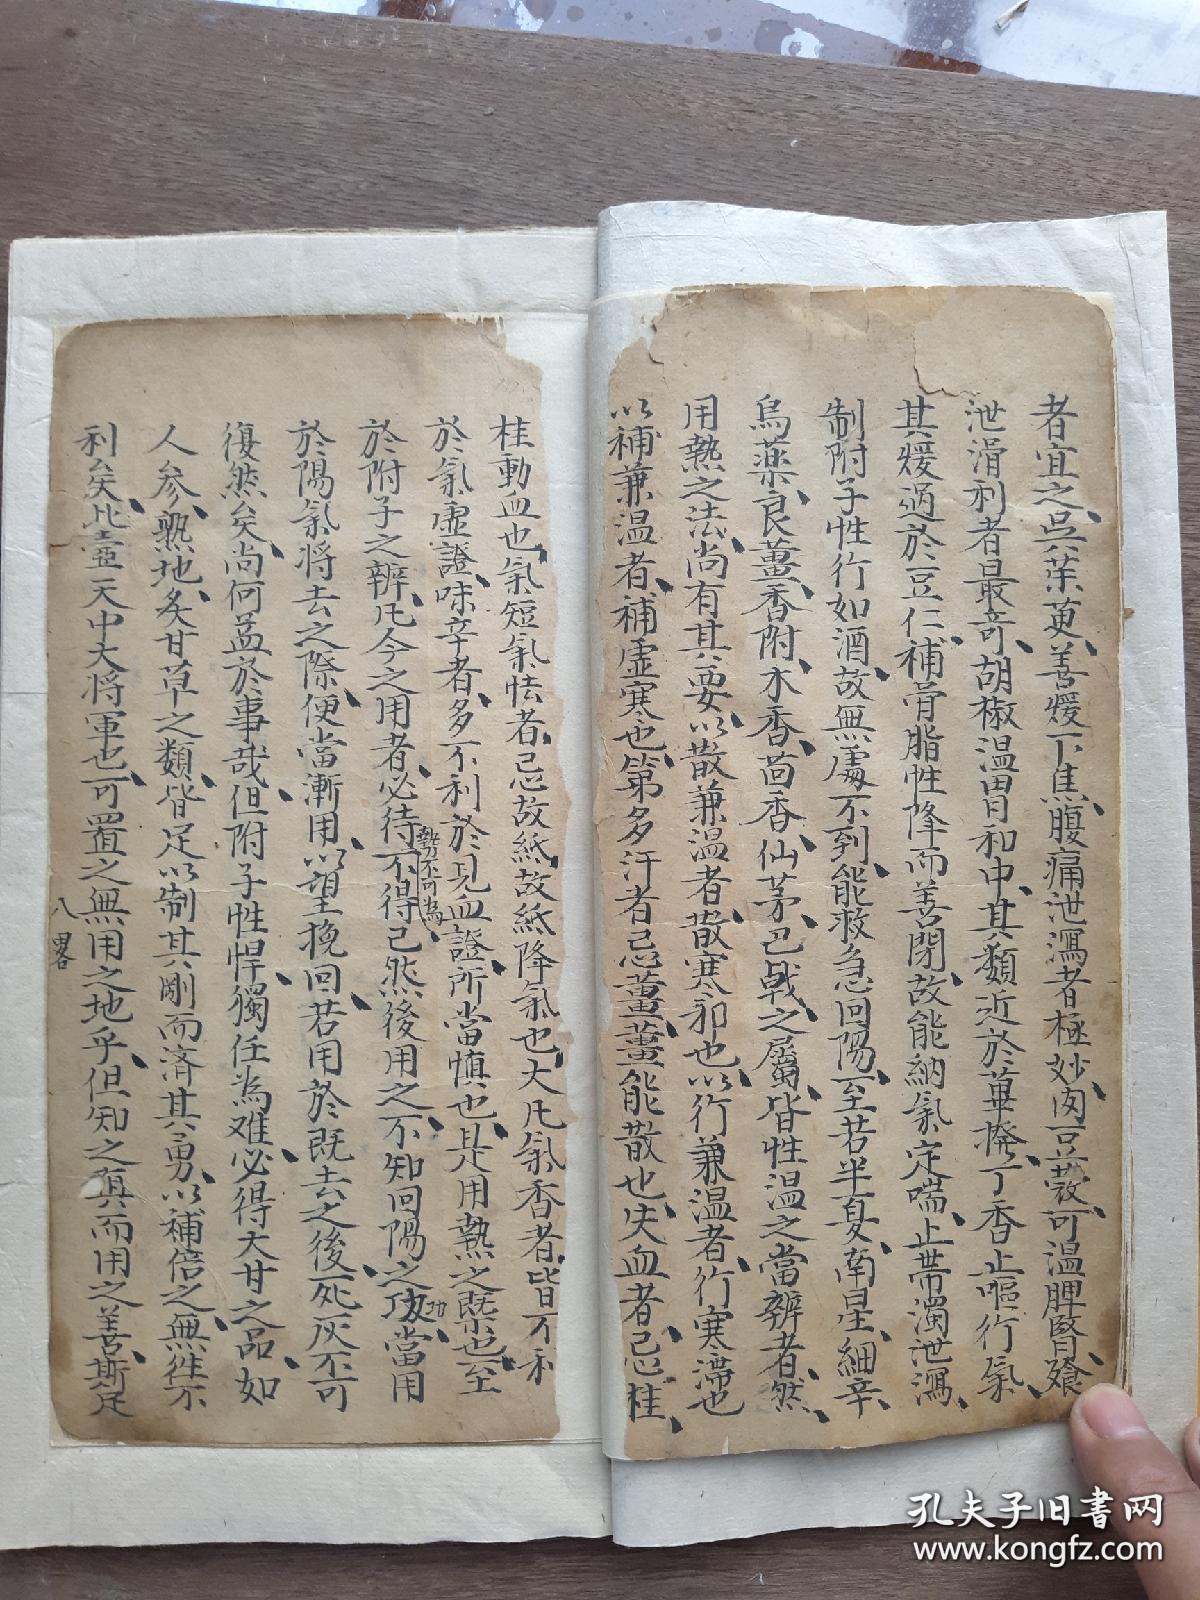 者宜之吳茱萸善煖下焦腹痛泄瀉者極妙肉豆蔻可温脾腎飱
泄滑利者最竒胡椒温胃和中其類近於蓽撥丁香止嘔行氣
其煖過於豆仁補骨脂性降而善閉故能納氣定喘止帶濁泄瀉
制附子性行如酒故無處不到能救急回陽至若半夏南星細辛
烏薬良薑香附木香茴香仙茅巴戟之屬皆性温之當辨者然
用熱之法尚有其要以散兼温者散寒邪也以行兼温者行寒滯也
以補兼温者補虚寒也第多汗者忌薑薑能散也失血者忌桂
桂動血也氣短氣怯者忌故紙故紙降氣也大凡氣香者皆不利
於氣虚證味辛者多不利於見血證所當慎也是用熱之槩也至
於附子之辨凡今之用者必待勢不可為不得已然後用之不知回陽之功當用
於陽氣將去之際便當漸用以望挽回若用於既去之後死灰不可
復然矣尚何益於事哉但附子性悍獨任為难必得大甘之品如
人參熟地炙甘草之類皆足以制其剛而済其勇以補倍之無徃不
利矣此壺天中大將軍也可置之無用之地乎但知之真而用之善斯足
八畧
孔夫子旧书网
www.kongfz.com